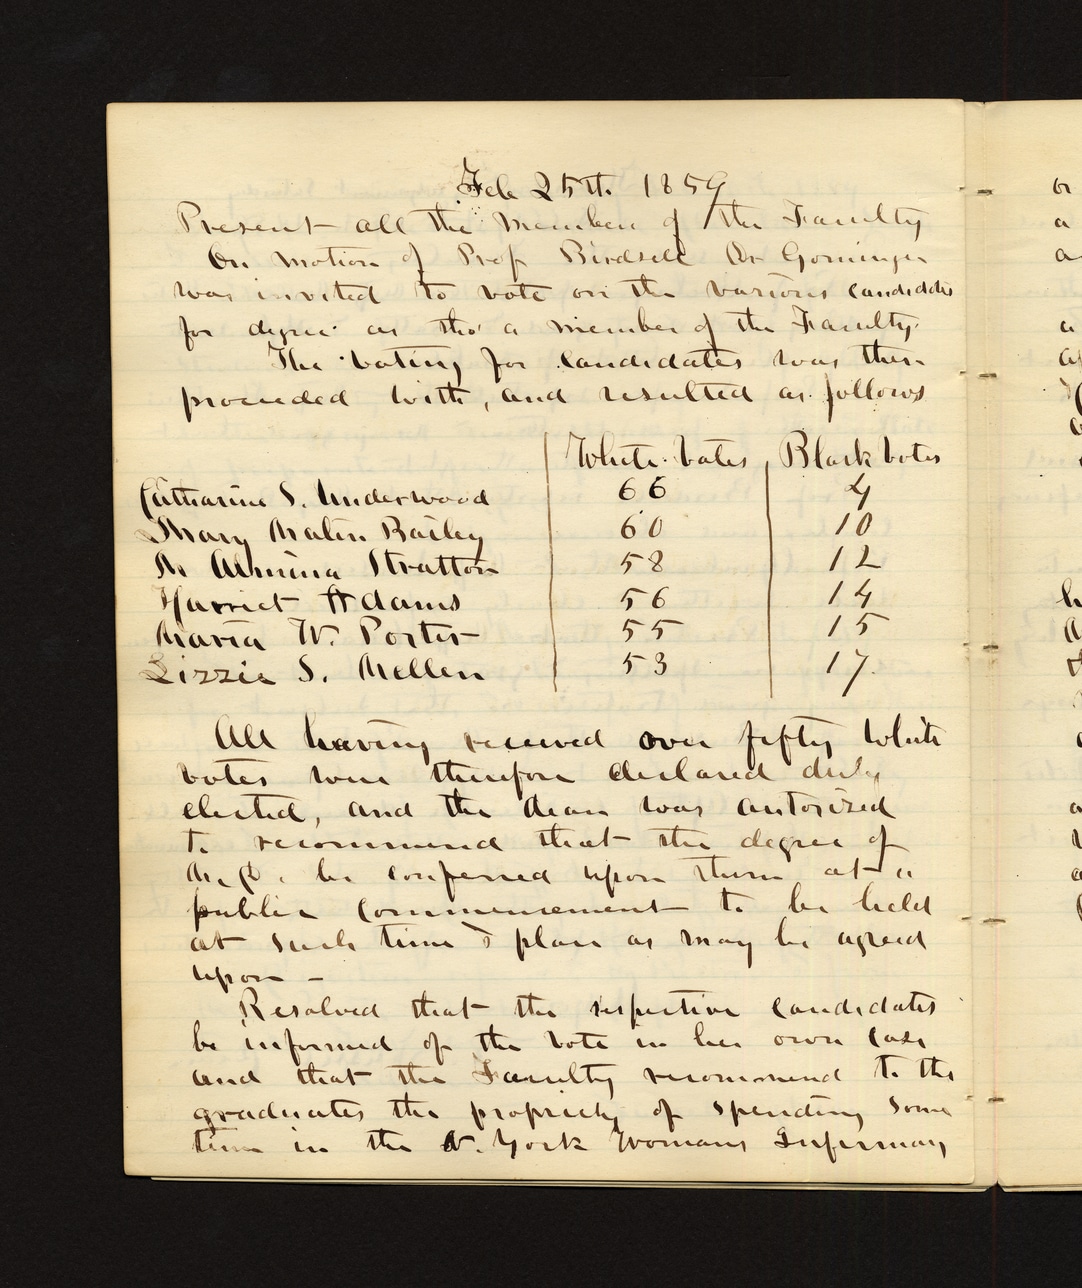 Feb 25th 1859
Present all the Member of the Faculty
On motion of Prof Birdsell Dr
was invited to vote on the various candidates
for degree as tho' a member of the Faculty.
The voting for candidates was then
proceeded with, and resulted as follows
White Votes Black Votes
Catharine S. Underwood 66 4
Mary Malin Bailey 60 10
M Almina Stratton 58 12
Harriet Adams 56 14
Maria W. Porter 55 15
Lizzie S. Mellen 53 17
All having received over fifty White
votes were therefore declared duly
elected, and the dean was autorized
to recommend that the degree of
M. D. be conferred upon them at a
public Commencement to be held
at such time & place as may be agreed
upon –
Resolved that the respective candidates
be informed of the vote in her own case
and that the Faculty recommend to the
graduates the propriety of spending some
time in the N. York Womans Infirmary
or
a
a
a